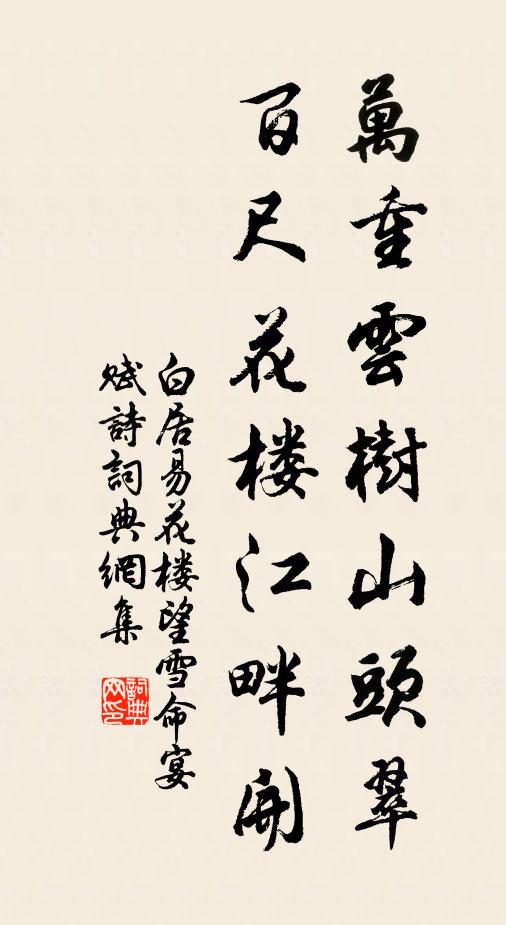 萬重雲樹山頭翠
百尺花楼江畔開
白居易花楼望雪命宴
賦詩詞典網集
詞典网印